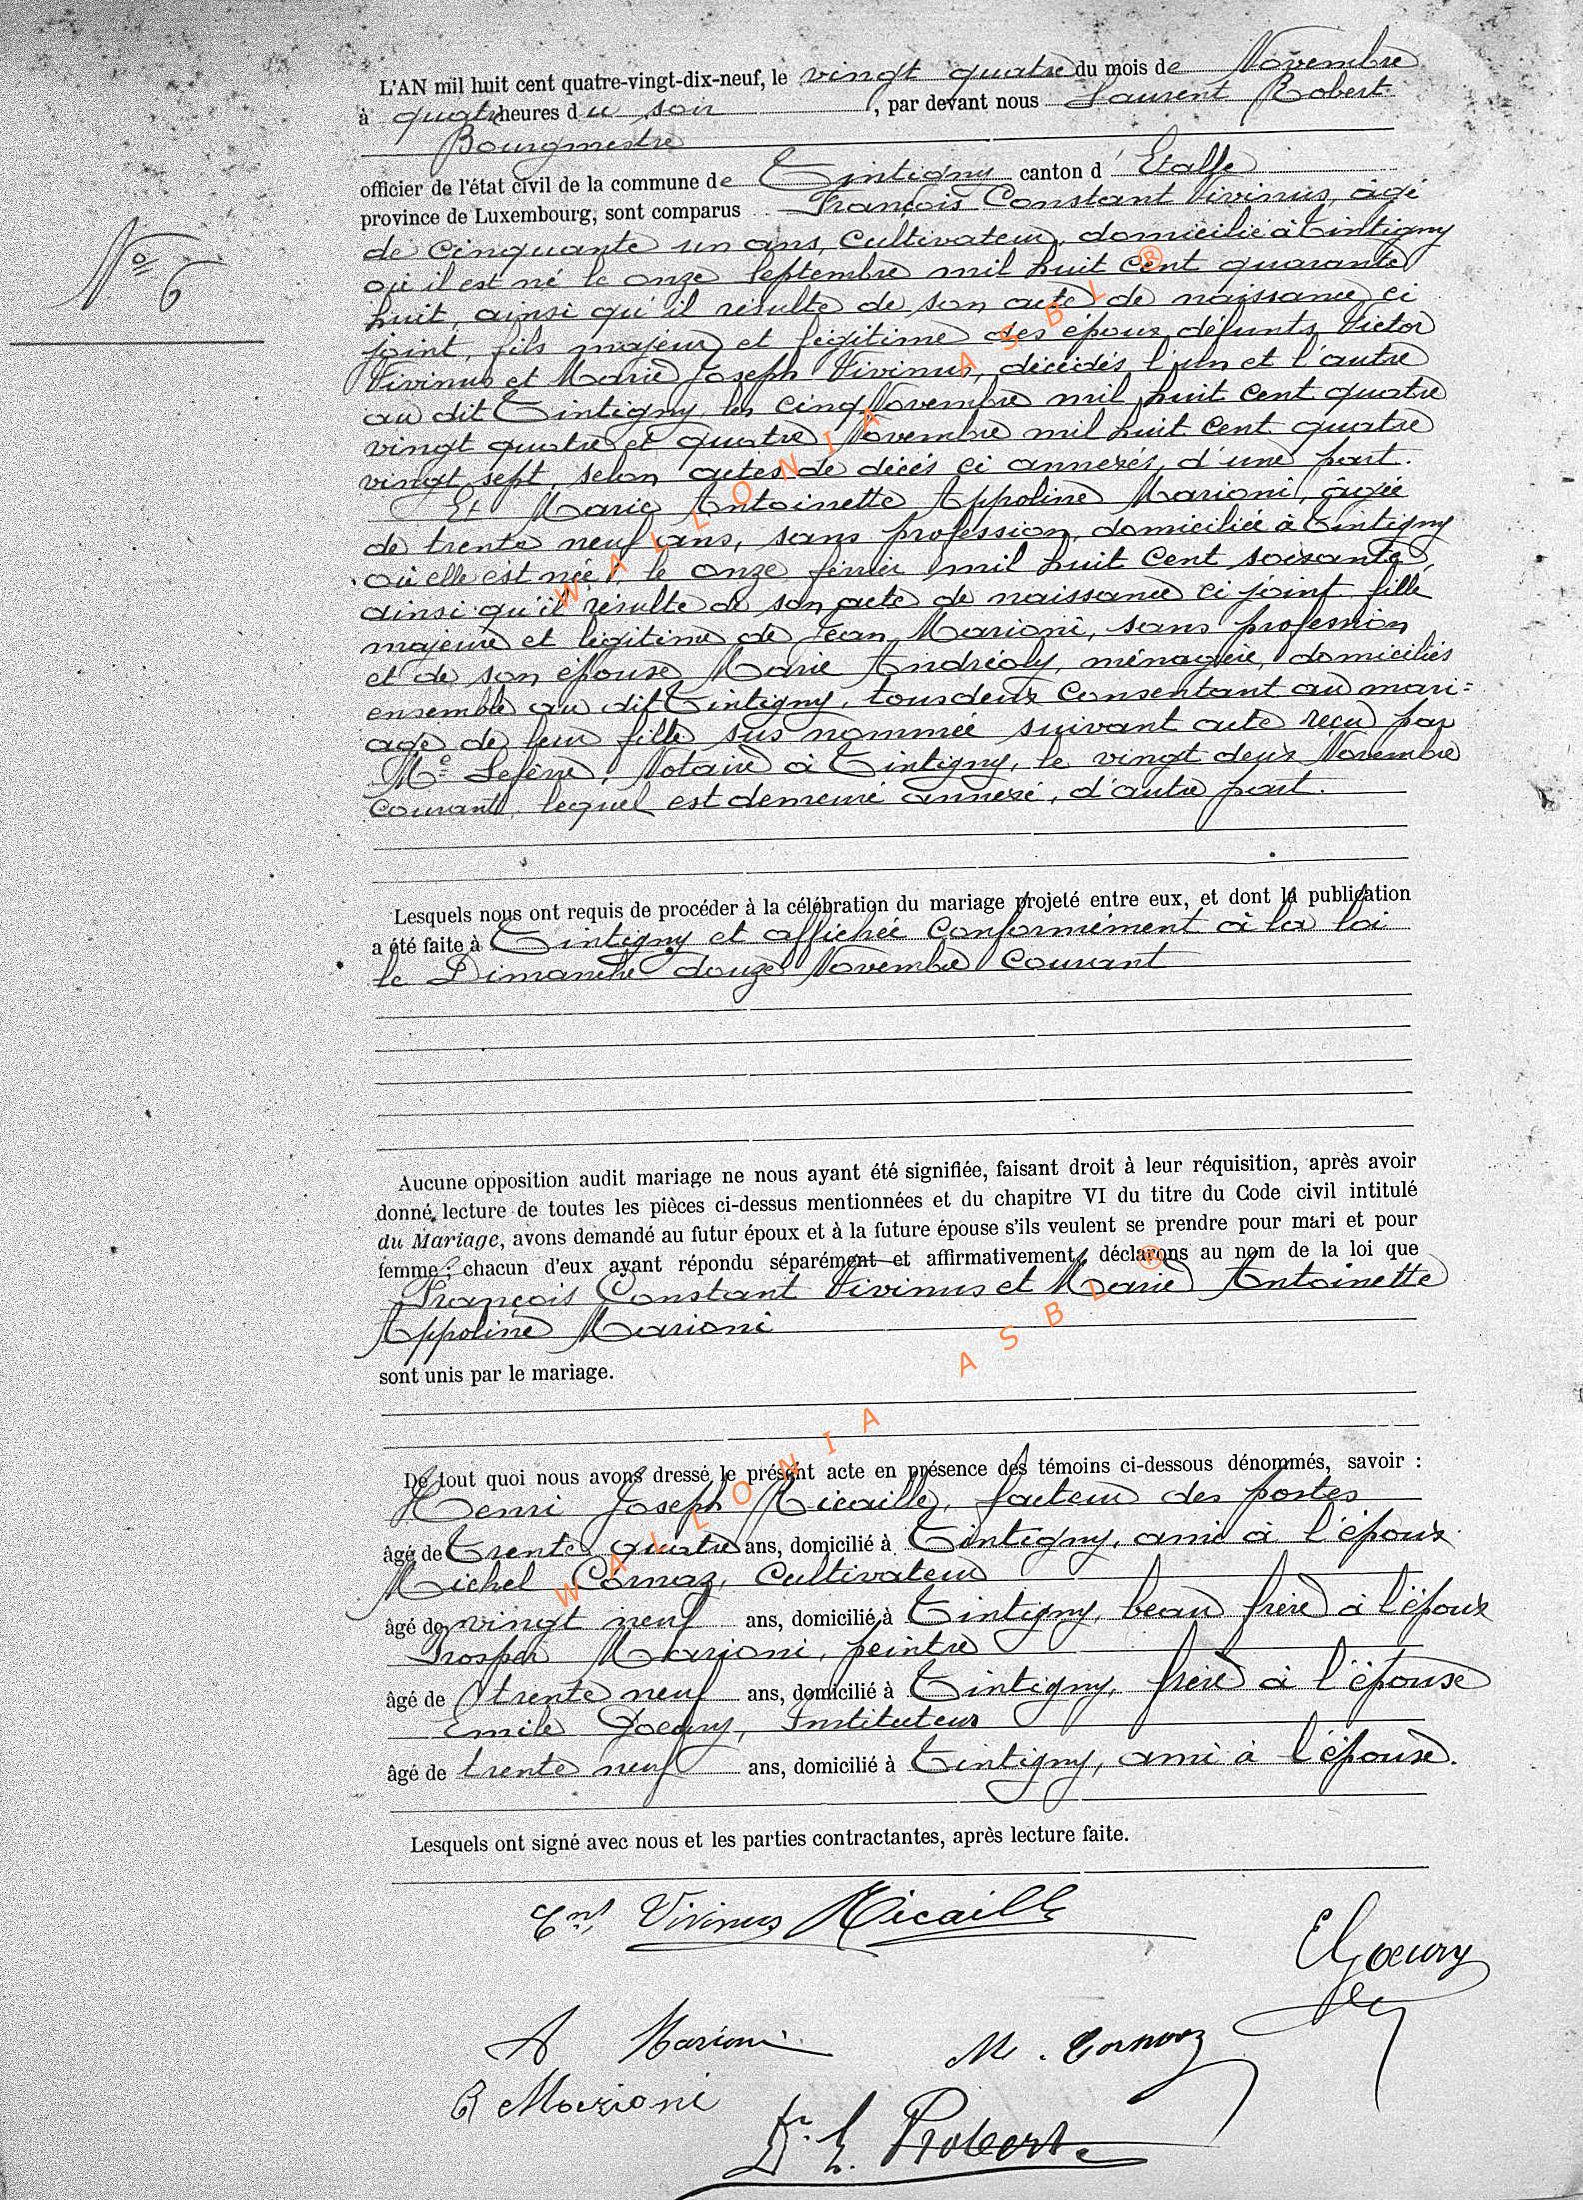 L'AN mil huit cent quatre-vingt-dix-neuf, le vingt quatre du mois de Novembre
à quatre heures du soir, par devant nous Laurent Robert
Bourgmestre
officier de l'état civil de la commune de Tintigny canton d'Etalle
province de Luxembourg, sont comparus François Constant Vivinus, âgé
de cinquante un ans, cultivateur, domicilié à Tintigny
où il est né le onze Septembre mil huit cent quarante
huit, ainsi qu'il résulte de son acte de naissance ci
joint, fils majeur et légitime des époux défunts Victor
Vivinus et Marie Joseph Vivinus, décédés l'un et l'autre
au dit Tintigny les cinq Novembre mil huit cent quatre
vingt quatre et quatre Novembre mil huit cent quatre
vingt sept, selon actes de décès ci annexés, d'une part.
Et Marie Antoinette Appoline Marioni, âgée
de trente neuf ans, sans profession, domiciliée à Tintigny
où elle est née, le onze février mil huit cent soixante,
ainsi qu'il résulte de son acte de naissance ci joint fille
majeure et légitime de Jean Marioni, sans profession
et de son épouse Marie Andréoly, ménagère, domiciliés
ensemble au dit Tintigny, tous deux consentant au mari=
age de leur fille sus nommée suivant acte reçu par
Me Lefèvre, Notaire à Tintigny, le vingt deux Novembre
courant, lequel est demeuré annexé, d'autre part.
No 6
Lesquels nous ont requis de procéder à la célébration du mariage projeté entre eux, et dont la publication
a été faite à Tintigny et affichée conformément à la loi
le Dimanche douze Novembre courant
Aucune opposition audit mariage ne nous ayant été signifiée, faisant droit à leur réquisition, après avoir
donné lecture de toutes les pièces ci-dessus mentionnées et du chapitre VI du titre du Code civil intitulé
du Mariage, avons demandé au futur époux et à la future épouse s'ils veulent se prendre pour mari et pour
femme ; chacun d'eux ayant répondu séparément et affirmativement, déclarons au nom de la loi que
François Constant Vivinus et Marie Antoinette
Appoline Marioni
sont unis par le mariage.
De tout quoi nous avons dressé le présent acte en présence des témoins ci-dessous dénommés, savoir :
Henri Joseph Micaille, facteur des postes
âgé de trente quatre ans, domicilié à Tintigny, ami à l'époux
Michel Cornaz, Cultivateur
âgé de vingt neuf ans, domicilié à Tintigny, beau frère à l'époux
Prosper Marioni, peintre
âgé de trente neuf ans, domicilié à Tintigny, frère à l'épouse
Emile Goeury, Instituteur
âgé de trente neuf ans, domicilié à Tintigny, ami à l'épouse.
Lesquels ont signé avec nous et les parties contractantes, après lecture faite.
Cnt Vivinus Micaille
E Goeury
A Marioni M. Cornaz
P Marioni
Dr. L. Robert
WALLONIA ASBL ®
WALLONIA ASBL ®